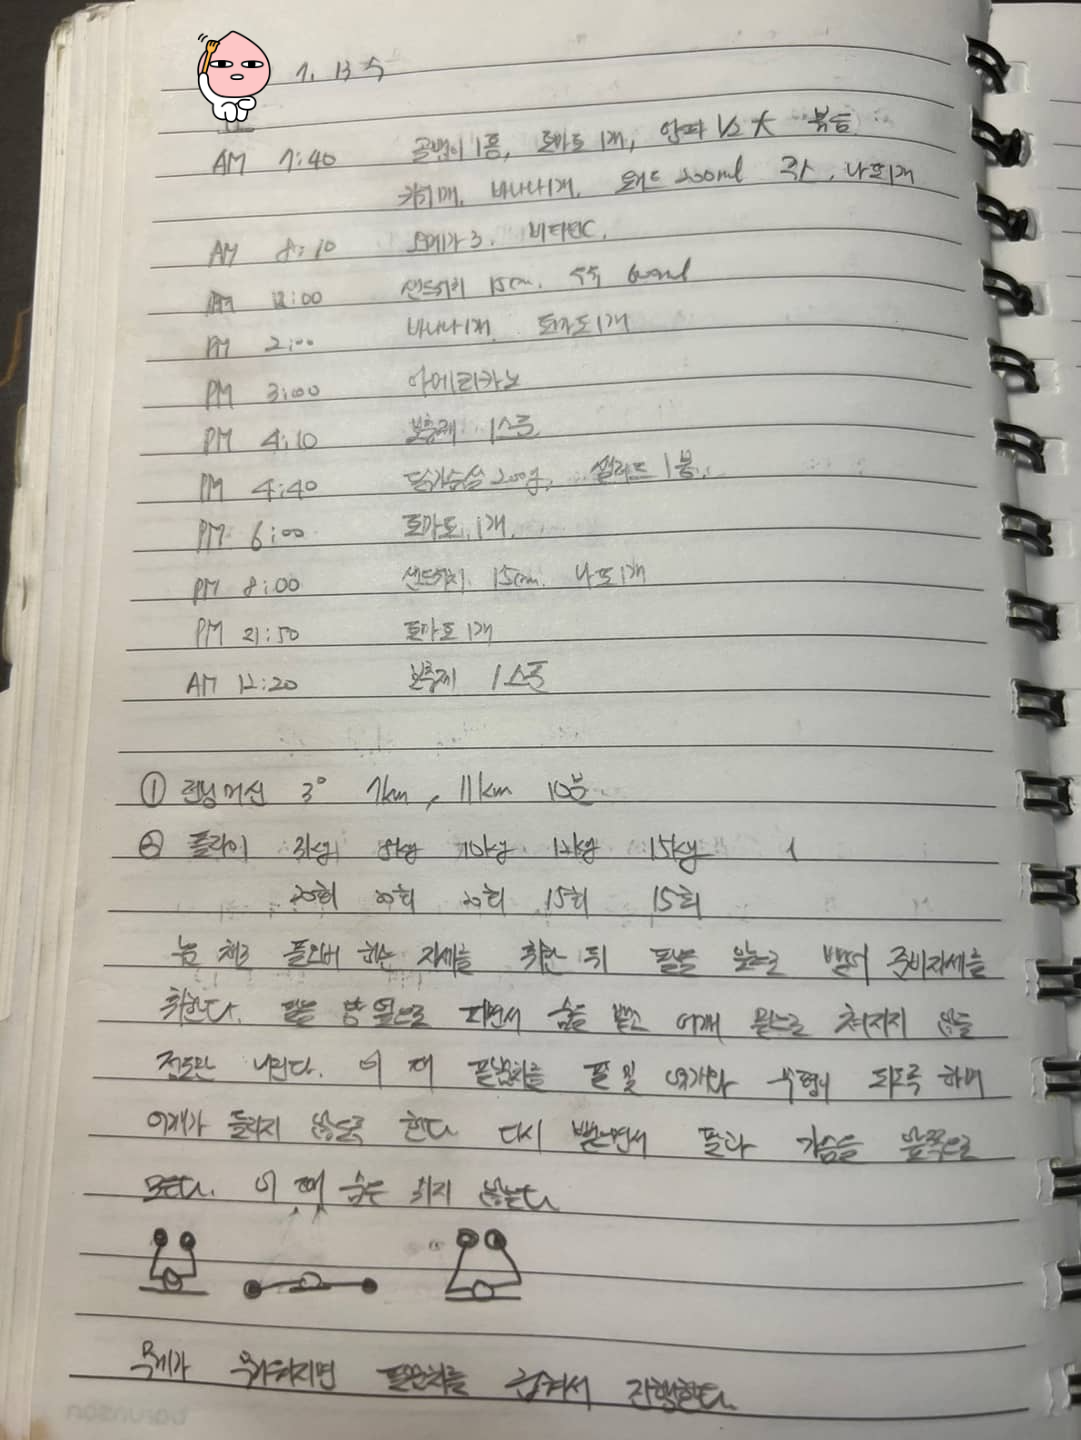 7. 13 수
AM 7:40 골뱅이 1줌, 토마토 1개, 양파 1/2 大 볶음
바나나 1개, 200ml, 낫또 1개
AM 8:10 오메가 3. 비타민C.
12:00 샌드위치 15cm. 600ml
PM 2:00 바나나 1개. 토마토 1개
PM 3:00 아메리카노
PM 4:10 보충제 1스푼
PM 4:40 닭가슴살 200g, 샐러드 1봉.
PM 6:00 토마토 1개.
PM 8:00 샌드위치 15cm. 낫또 1개
PM 21:50 토마토 1개
AM 12:20 보충제 1스푼
① 런닝머신 3° 7km, 11km 10분
② 플라이 8kg 10kg 12kg 15kg
20회 20회 20회 15회 15회
누운 채로 풀오버 하는 자세를 취한 뒤 팔을 앞으로 뻗어 준비자세를
취한다. 팔을 양 옆으로 펴면서 숨을 뱉고 어깨 밑으로 쳐지지 않을
정도만 내린다. 이 때 팔꿈치를 팔 및 어깨와 수평이 되도록 하며
어깨가 들리지 않도록 한다. 다시 뱉으면서 팔과 가슴을 앞쪽으로
모은다. 이 때 숨은 쉬지 않는다.
무게가 무거워지면 팔꿈치를 굽혀서 진행한다.